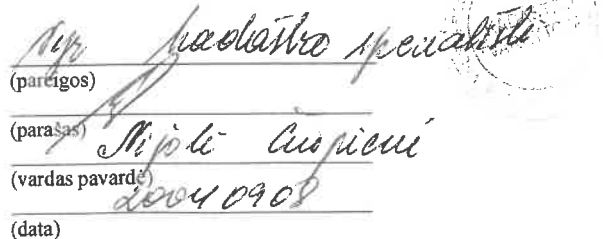 Vyr. kadastro specialistė
(pareigos)
(parašas)
Nijolė
(vardas pavardė)
2004 09 08
(data)